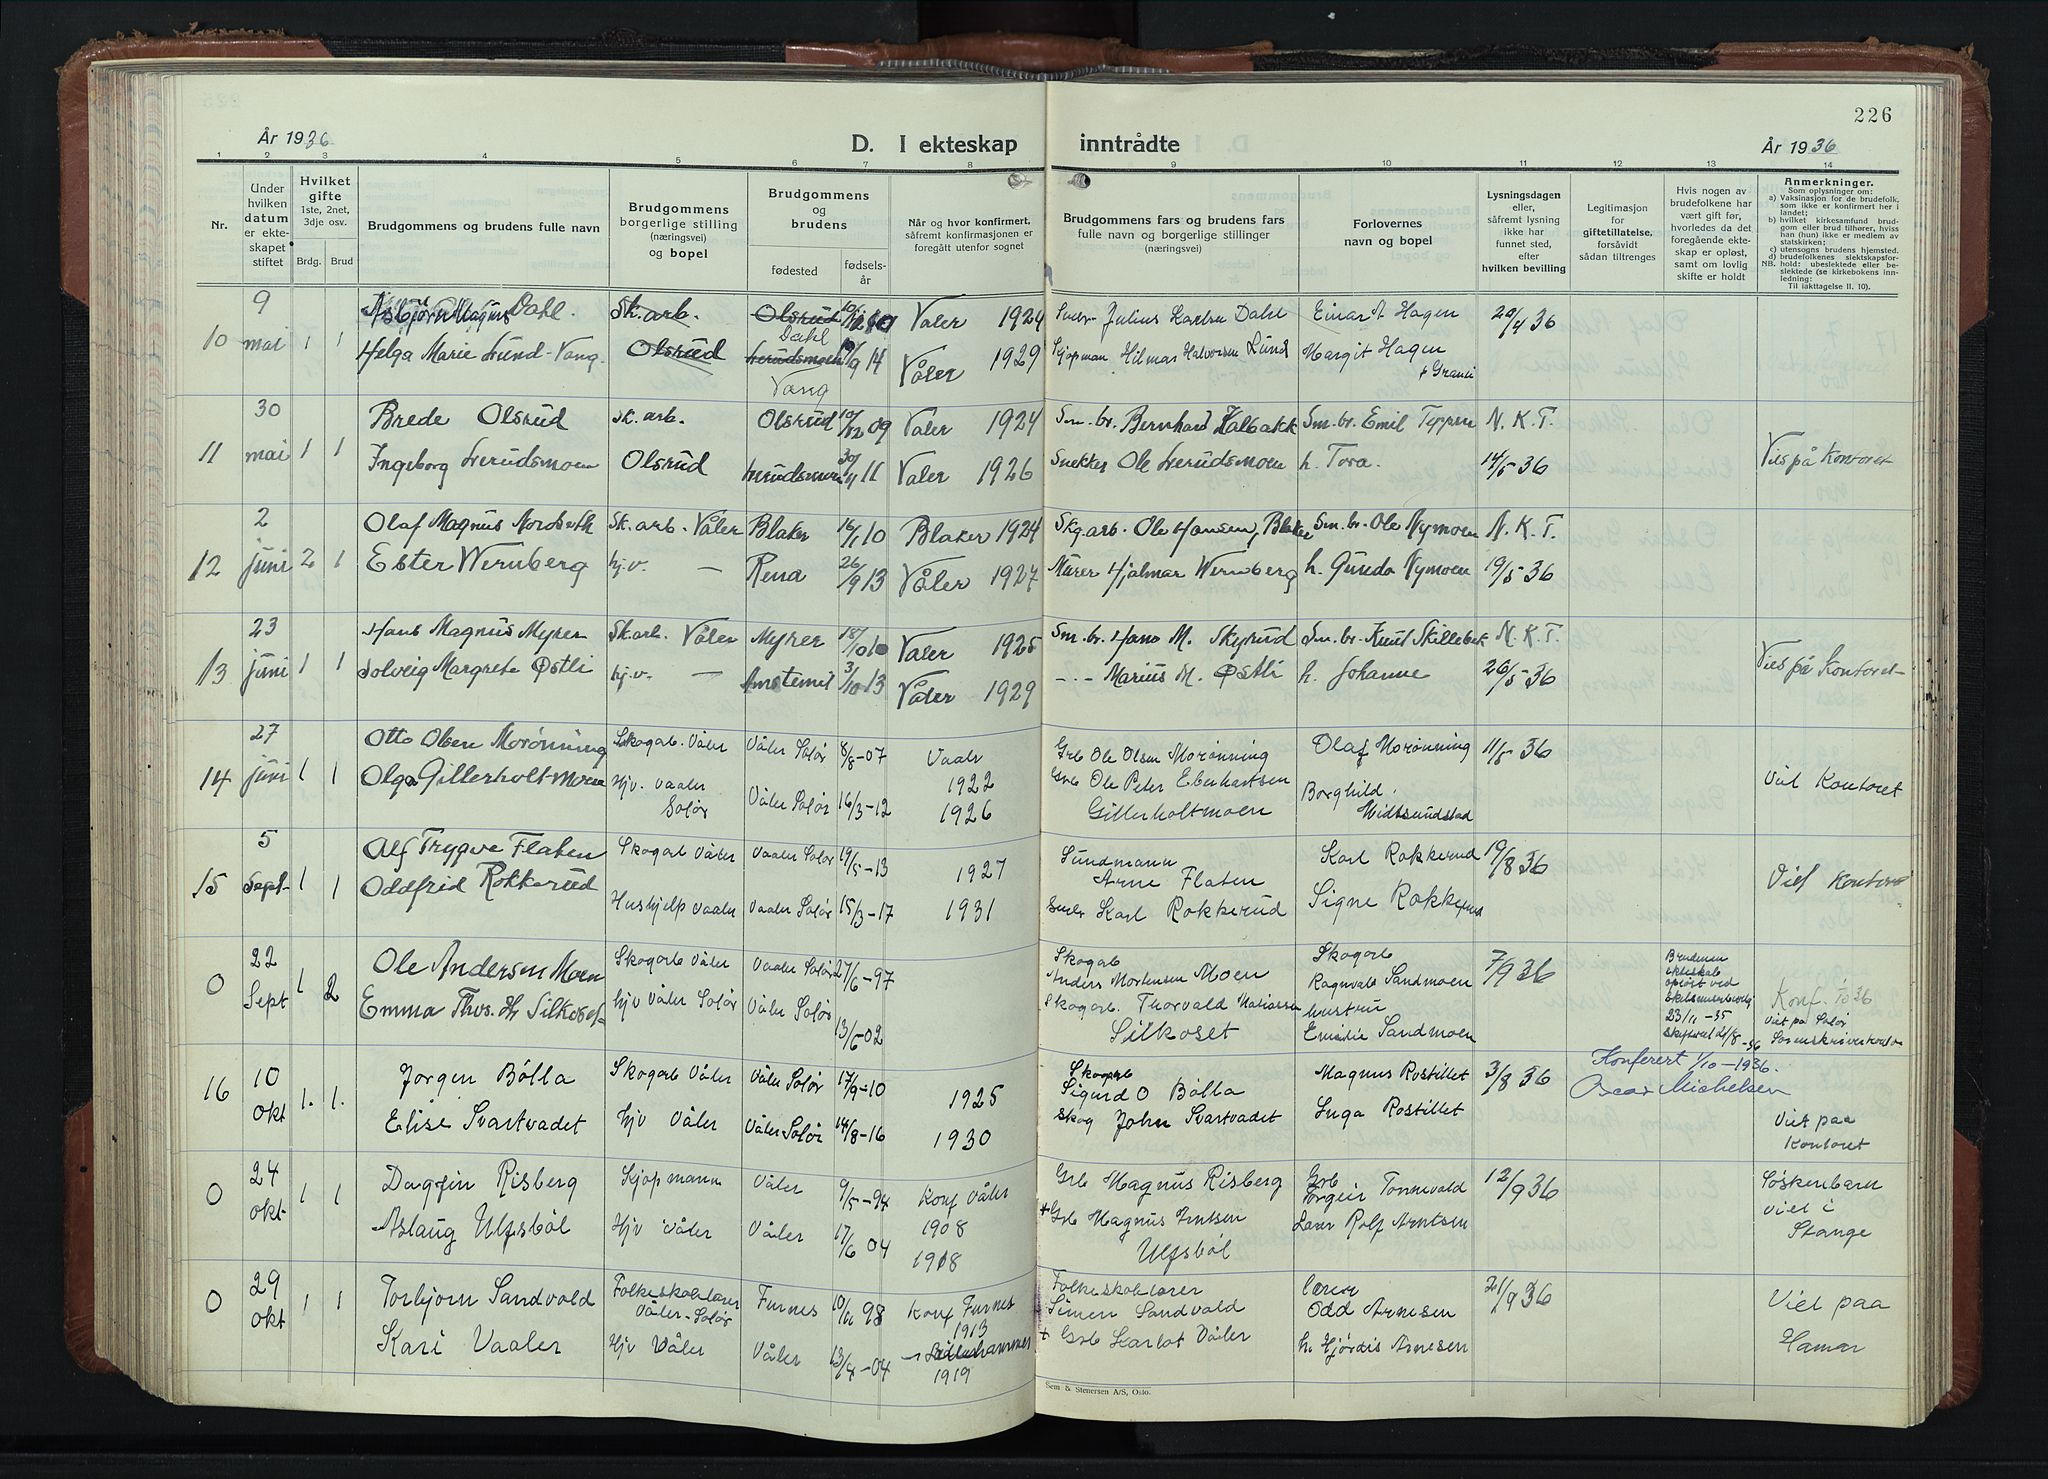 226
År 1936
D. I ekteskap inntrådte
År 1936
1 2 3 4 5 6 7 8 9 10 11 12 13 14
Nr.
Under hvilken datum er ekteskapet stiftet
Hvilket gifte
1ste, 2net, 3dje osv.
Brdg. Brud
Brudgommens og brudens fulle navn
Brudgommens borgerlige stilling (næringsvei) og bopel
Brudgommens og brudens
fødested
fødselsår
Når og hvor konfirmert, såfremt konfirmasjonen er foregått utenfor sognet
Brudgommens fars og brudens fars fulle navn og borgerlige stillinger (næringsvei)
Forlovernes navn og bopel
Lysningsdagen eller, såfremt lysning ikke har funnet sted, efter hvilken bevilling
Legitimasjon for giftetillatelse, forsåvidt sådan tiltrenges
Hvis nogen av brudefolkene har vært gift før, hvorledes da det foregående ekteskap er opløst, samt om lovlig skifte er holdt
Anmerkninger.
Som oplysninger om:
a) Vaksinasjon for de brudefolk, som ikke er konfirmert her i landet;
b) hvilket kirkesamfund brudgom eller brud tilhører, hvis han (hun) ikke er medlem av statskirken;
c) utensogns brudens hjemsted.
d) brudefolkenes slektskapsforhold: ubeslektede eller beslektede (se kirkebokens innledning:
NB.
Til iakttagelse II. 10).
10 9 mai 1 1
Asbjørn Magnus Dahl. Sk. arb. Olsrud Dahl 10 Våler 1924 Julius Karlsen Dahl Einar A Hagen 20/4 36
Helga Marie Lund-Vang. Olsrud Vang 9 14 Våler 1929 Sjøpman Hilmar Halvorsen Lund Margit Hagen
11 30 mai 1 1
Brede Olsrud Sk. arb. Olsrud 10/12 09 Våler 1924 Sm. br. Bernhard Kalbakk Sm. br. Emil Teppen N. K. T.
Ingeborg Lerudsmoen Olsrud Lerudsmoen 30/11 11 Våler 1926 Snekker Ole Lerudsmoen h. Tora. 14/5 36 Vies på Kontoret
12 2 juni 2 1
Olaf Magnus Nordseth Sk. arb. Våler Blaker 16/1 10 Blaker 1924 Skg. arb. Ole Hansen, Blaker Sm. br. Ole Nymoen N. K. T.
Ester Wernberg hj.v. — Rena 26/9 13 Våler 1927 Murer Hjalmar Wernberg h. Gunda Nymoen 19/5 36
13 23 juni 1 1
Hans Magnus Myrer Sk. arb. Våler Myrer 18/10 10 Våler 1925 Sm. br. Hans M. Skyrud Sm. br. Knut Skillebek N. K. T.
Solveig Margrete Østli hj.v. — 3/10 13 Våler 1929 - . - Marius M. Østli h. Johanne 26/5-36 Vies på Kontoret
14 27 juni 1 1
Otto Olsen Morønning Skogarb. Våler Våler Solør 8/8-07 Vaaler 1922 Grb Ole Olsen Morønning Olaf Morønning 11/5 36
Olga Gillerholtmoen Hjv. Vaaler Solør Våler Solør 16/3-12 1926 Grb Ole Peter Eberhartsen Gillerholtmoen Borghild Midtsundstad Viet Kontoret
15 5 Sept 1 1
Alf Trygve Flaten Skogarb Våler Vaaler Solør 19/5-13 1927 Sundmann Arne Flaten Karl Rokkerud 19/8 36
Oddfrid Rokkerud Hushjelp Vaaler Vaaler Solør 15/3-17 1931 Karl Rokkerud Signe Rokkerud Viet Kontoret
0 22 Sept 1 2
Ole Andersen Moen Skogarb Våler Vaaler Solør 27/6-97 Skogarb Anders Mortensen Moen Skogarb Ragnvald Sandmoen 7/9 36 Brudenes ekteskab opløst ved 23/11-35
Emma Thvs. Silkoset hjv Våler Solør Våler Solør 13/6-02 Skogarb. Thorvald Silkoset hustru Emilie Sandmoen Konf. Viet på Solør Sorenskriverkontor
Konferert 1/10-1936.
Oscar Michelsen
16 10 Okt 1. 1.
Jørgen Bølla Skogarb Våler Våler Solør 17/9-10 1925 Skogarb Sigurd O Bølla Magnus Rostillet 3/8 36
Elise Svartvadet Hjv Våler Våler Solør 14/8-16 1930 Skog John Svartvadet Inga Rostillet Viet paa Kontoret
0 24 okt 1 1
Dagfin Risberg Kjøpmann Våler 9/5-94 Konf Våler 1908 Grb Magnus Risberg Grb Torgeir Tornevald 12/9 36 Søskenbarn viet i Stange
Aslaug Ulfsbøl Hjv Våler Våler 17/6 04 1918 + Grb Magnus Arntsen Ulfsbøl Lærer Rolf Arntsen
0 29 okt 1 1
Torbjørn Sandvold Folkeskolelærer Våler-Solør Furnes 98 Konf Furnes 1913 Folkeskolelærer Simen Sandvold lærer Odd Arnesen 21/9 36 Viet paa Hamar
Kari Vaaler Hjv Våler Våler 13/4-04 Lillehammer 1919 + Grb Karlot Våler h. Hjørdis Arnesen
Sem & Stenersen A/S, Oslo.